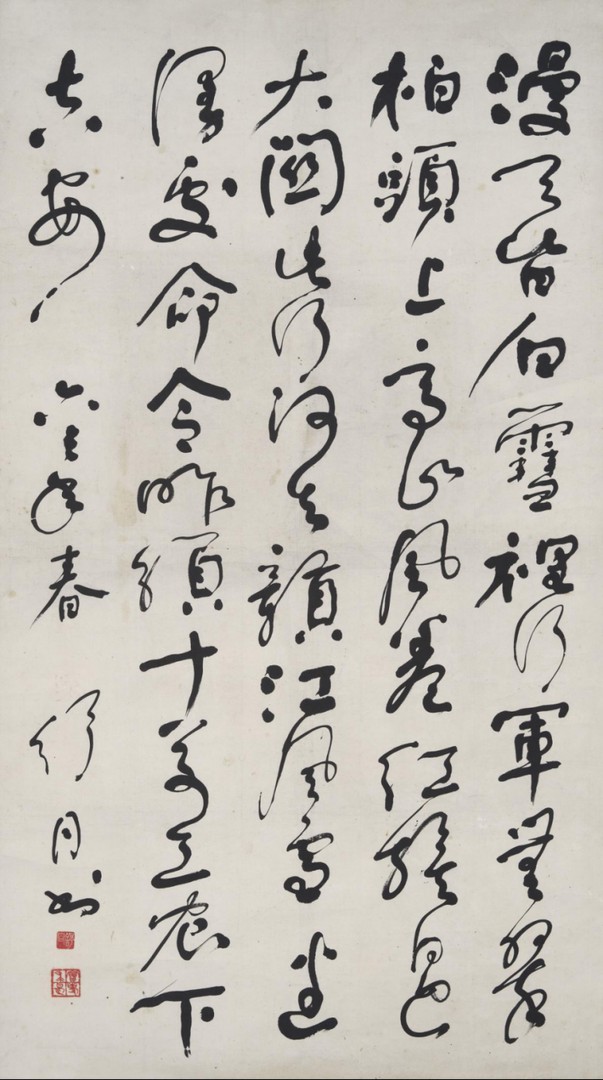 漫天皆白雪裡行軍無翠
柏頭上高山風卷紅旗過
大關此行何去贛江風雪迷
漫處命令昨頒十萬工農下
吉安 年春